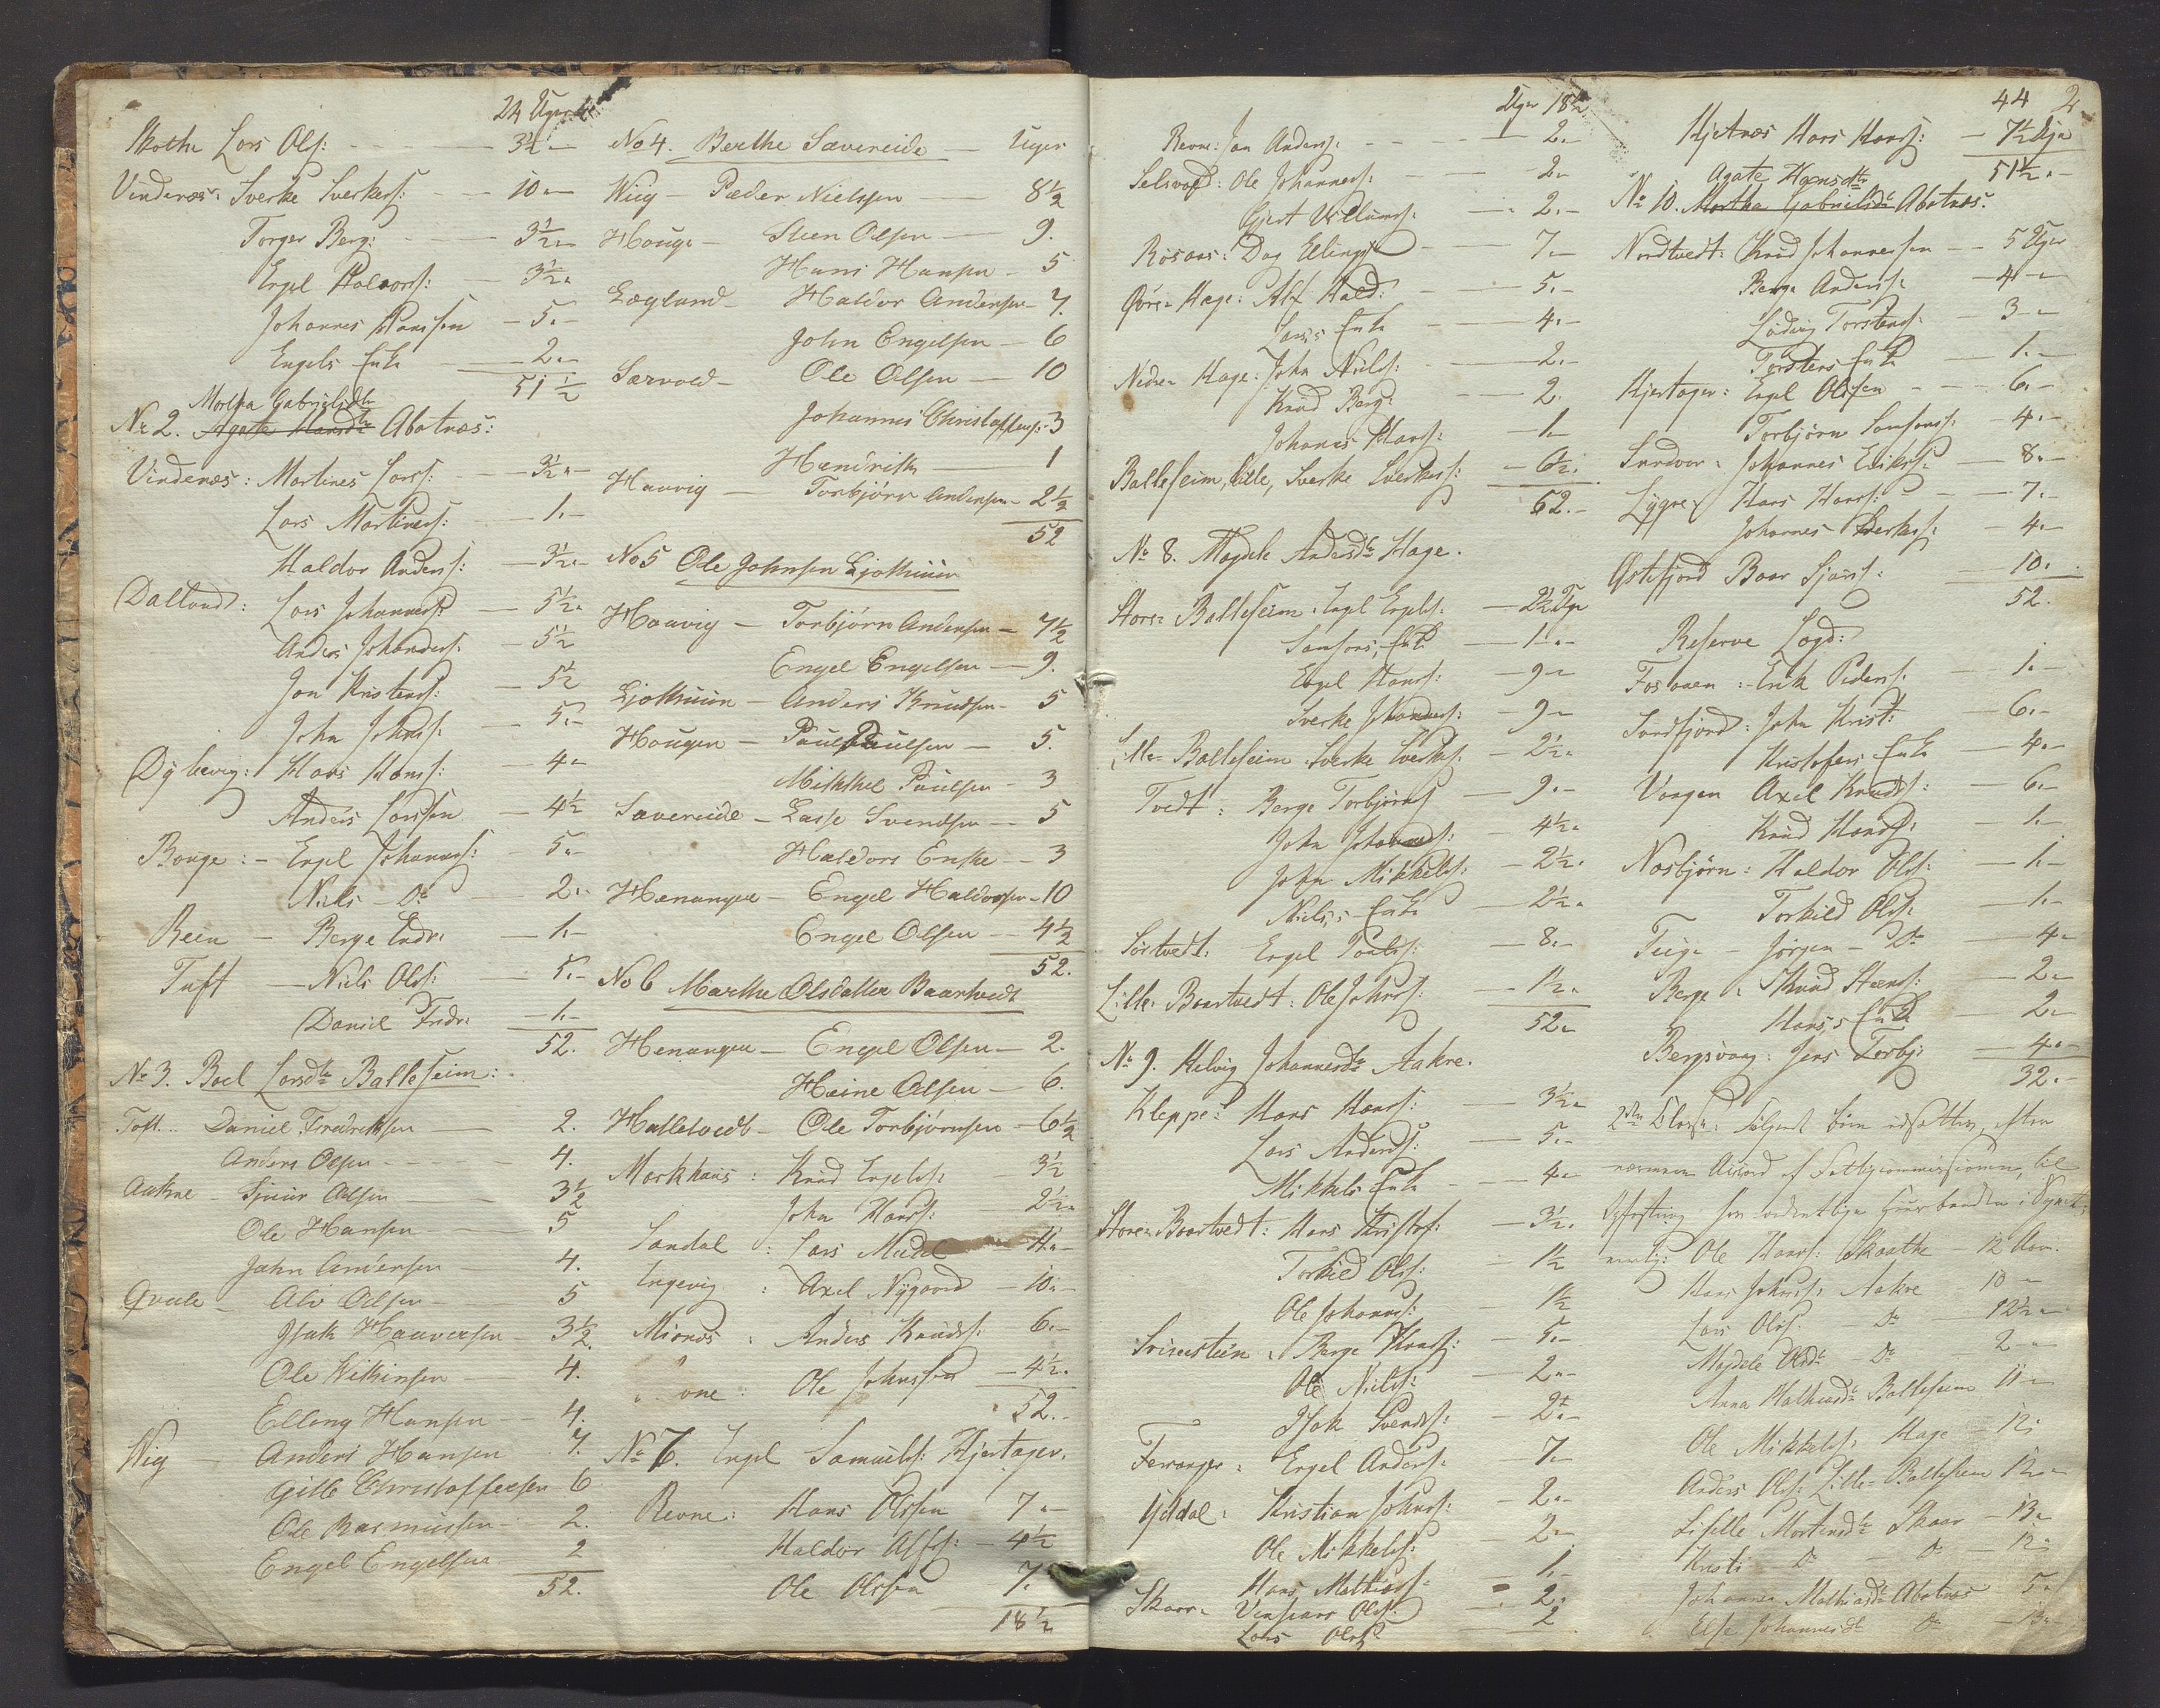 24 Uger
Skothe Lars Ols: - 3½ -
Vindenæs: Sverke Sverkess: - 10 -
Torger Berg: - 3½ -
Engel Halvors: - 3½ -
Johannes Hanssen - 5 -
Engels Enke - 2 -
51½
Martha Gabrielsdtr
No 2. Agate Hansdtr Abotnæs:
Vindenæs: Martines Lars: - 3½ -
Lars Martines: - 1. -
Haldor Anders: - 3½ -
Dalland: Lars Johanness: - 5½
Anders Johanness: - 5½
Jon Kristens: - 5½
John Johns: - 5. -
Dyhevig: Hans Hans: - 4 -
Anders Larssen - 4½
Bouge: - Engel Johannes: - 5. -
Niels - Do - 2. -
Reen - Berge Endr: - 1. -
Tuft - Niels Ols: - 5. -
Daniel Fredr: - 1. -
52.
No 3. Boel Larsdtr Balleseim:
Toft - Daniel Fredriksen - 2.
Anders Olsen - 4.
Aakre - Sjuur Olsen - 3½
Ole Hansen - 5
John Andersen - 4.
Qvale - Alv Olsen - 5
Isak Haaversen - 3½.
Ole Wilkinsen - 4.
Elling Hansen - 4.
Wig - Anders Hansen - 4.
Gitle Christoffersen - 6
Ole Rasmussen - 2.
Engel Engelsen - 2
52.
No 4. Berthe Sævereide - Uger
Wiig - Peder Nielsen - 8½
Houge - Steen Olsen - 9.
Hans Hansen - 5
Eegland - Haldor Andersen - 7.
John Engelsen - 6
Særvold - Ole Olsen - 10
Johannes Christoffers: - 3
Hendrik - 1
Haavig - Torbjörn Andersen - 2½
52
No 5 Ole Johnsen Ljothuun
Haavig - Torbjörn Andersen - 7½
Engel Engelsen - 9.
Ljothuun - Anders Knudsen - 5
Hougen - Paul Paulsen - 5.
Mikkel Paulsen - 3
Sævereide - Lasse Svendsen - 5
Haldors Enke - 3
Henanger - Engel Haldorsen - 10
Engel Olsen - 4½
52.
No 6 Marthe Olsdatter Baartvedt
Henanger - Engel Olsen - 2.
Heine Olsen - 6.
Halletvedt - Ole Torbjörnsen - 6½
Markhuus: Knud Engels: 3½
John Hans: - 2½ -
Sandal: Lars - 11 -
Engevig: Axel Nygaard - 10 -
Mionæs: Anders Knuds: 6. -
" one: Ole Johnssen - 4½.
52. -
No 7. Engel Samuels: Hjertager.
Revne: Hans Olssen 7 -
Haldor Alfs: - 4½
Ole Olssen 7.
18½
Uger 18½
Revne: Jon Anders: - 2. -
Selsvold: Ole Johannes: - 2 -
Gjert Villums: - 2. -
Rosaas: Dag Ellings: - 7. -
Övre Hage: Alf Hald: - 5. -
Lars's Enke - 4. -
Nedre Hage: John Niels: - 2. -
Knud Berg: - 2.
Johannes Hans: - 1. -
Balleseim, lille, Sverke Sverkes: - 6½.
52. -
No 8. Magdele Andersdtr Hage.
Store Balleseim: Engel Engels: - 2½ Uge
Samsons Enke - 1. -
Engel Hans: - 9 -
Sverke Johannes: - 9 -
Lille Balleseim Sverke Sverkes: - 2½ -
Tvedt: Berge Torbjörns: - 9. -
John Johannes: - 4½ -
John Mikkels: - 2½ -
Niels's Enke - 2½ -
Sörtvedt: Engel Pouls: - 8. -
Lille Baartvedt: Ole Johns: - 1½ -
52 -
No 9. Helvig Johannesdtr Aakre.
Kleppe: Hans Hans: - 3½ -
Lars Anders: - 5. -
Mikkels Enke - 4 -
Store Baartvedt: Hans Kristof: - 3½.
Torkild Ols: - 1½
Ole Johannes: - 1½
Berge Hans: - 5. -
Ole Niels: - 2 -
Isak Svends: - 2. -
Ferranger: Engel Anders: - 7 -
Yddal: Kristian Johns: - 2 -
Ole Mikkels: - 2 -
Hans Mathias: - 1. -
Skaar: Ols: - 2.
Lars Ols: 2
44 2
Hjertnæs Hans Hans: - 7½ Uge
51½. -
Agate Hansdtr
No 10. Martha Gabrielsdtr Abotnæs.
Nordtvedt: Knud Johannessen - 5 Uger
Berge Anders: - 4 -
Ludvig Torstens: - 3 -
Torstens Enke - 1. -
Hjertager: Engel Olssen - 6. -
Torbjörn Samsons: - 4. -
Sandvor: Johannes Eriks: - 8. -
Lygre: Hans Hans: - 7. -
Johannes Sverkes: - 4. -
Östefjord Baar Sjurs: - 10. -
52.
Reserve Lægd:
Fosaaen: Erik Peders: - 1. -
Sandfjord: John Krist: - 6. -
Kristofers Enke - 4. -
Vaagen Axel Knuds: - 6 -
Knud Hans: - 1. -
Nosbjörn: Haldor Ols: - 1. -
Torkild Ols: - 1. -
Teige - Jörgen - Do - 4 -
Berge: Knud Steens: - 2 -
Hans's Enke - 2 -
Bergsvaag: Jens Torbj: - 4. -
32. -
2den Classe: Følgende Børn udsættes, efter
nærmere Accord af Fattigcommissionen, til
Opfostring hos ordentlige Huusbonden i Sognet;
nemlig: Ole Hans: Skaathe - 12 Aar.
Hans Johns: Aakre - 10 -
Lars Ols: - Do - 12½ -
Magdele Olsdtr - Do - 2 -
Anna Mathiasdtr Balleseim 11 -
Ole Mikkels: Hage - 12 -
Anders Ols: Lille Balleseim 12 -
Siselle Mortensdtr Skaar - 13 -
Kristi - Do - Do - 12 -
Johanna Mathiasdtr Abotnæs 5 -
Else Johannesdtr Do - 13 -